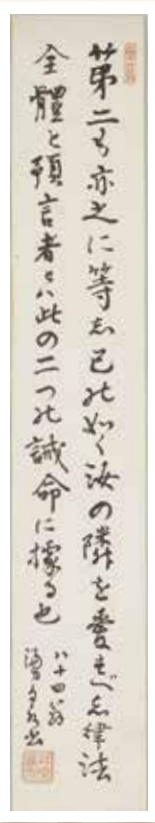 第二も亦之に等し己の如く汝の隣を愛すべし律法
全體と預言者とハ此の二つの誡命に據る也
八十四翁